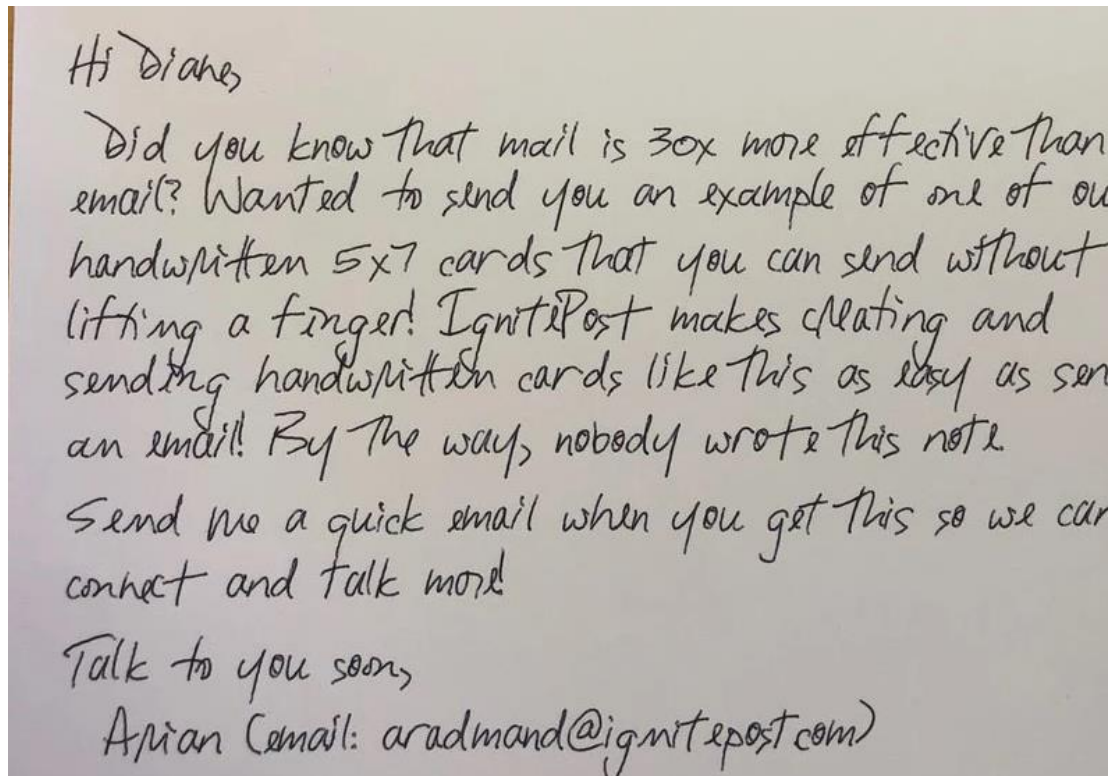 Hi Diane,
Did you know that mail is 30x more effective than
email? Wanted to send you an example of one of ou
handwritten 5x7 cards that you can send without
lifting a finger! IgnitePost makes creating and
sending handwritten cards like this as easy as sen
an email! By the way, nobody wrote this note.
Send me a quick email when you get this so we can
connect and talk more!
Talk to you soon,
Arian (email: aradmand@ignitepost.com)